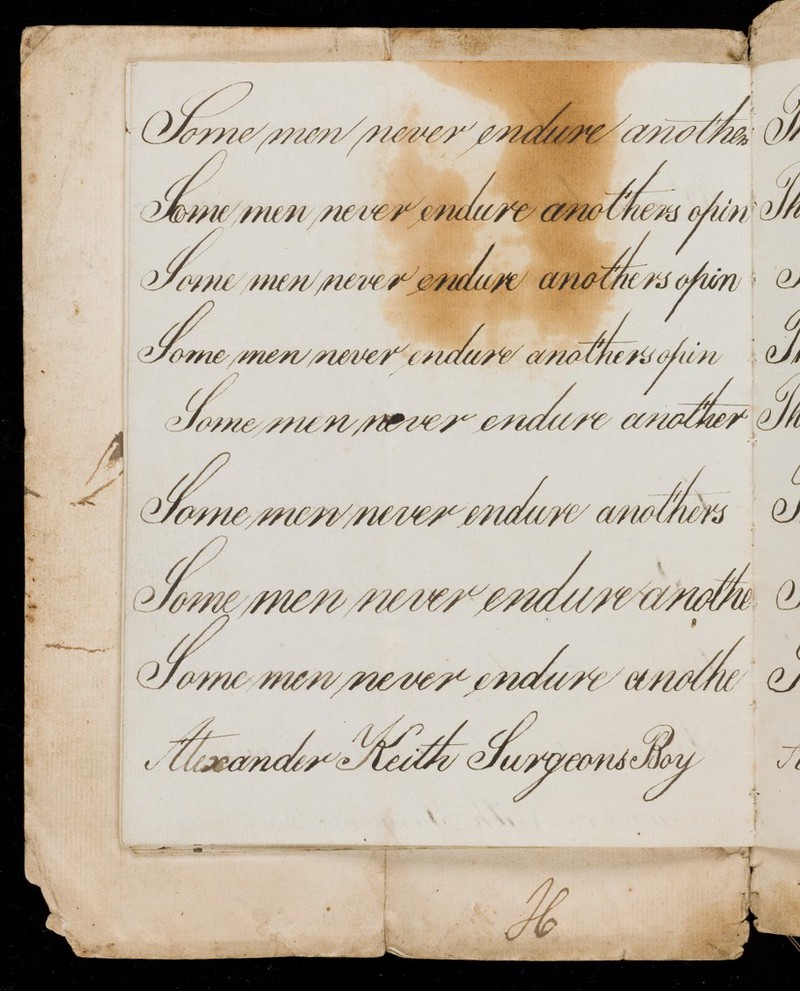 Some men never endure anothers
Some men never endure anothers opin
Some men never endure anothers opin
Some men never endure anothers opin
Some men never endure another
Some men never endure anothers
Some men never endure anothe
Some men never endure anothe
Alexander Keith Surgeons Boy
H